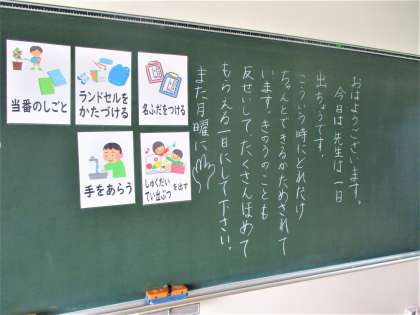 おはようございます。
今日は先生は一日
出ちょうです。
こういう時にどれだけ
ちゃんとできるかためされて
います。きのうのことも
反せいして、たくさんほめて
もらえる一日にして下さい。
また月曜に
当番のしごと
ランドセルを
かたづける
名ふだをつける
手をあらう
しゅくだい
てい出ぶつ
を出す